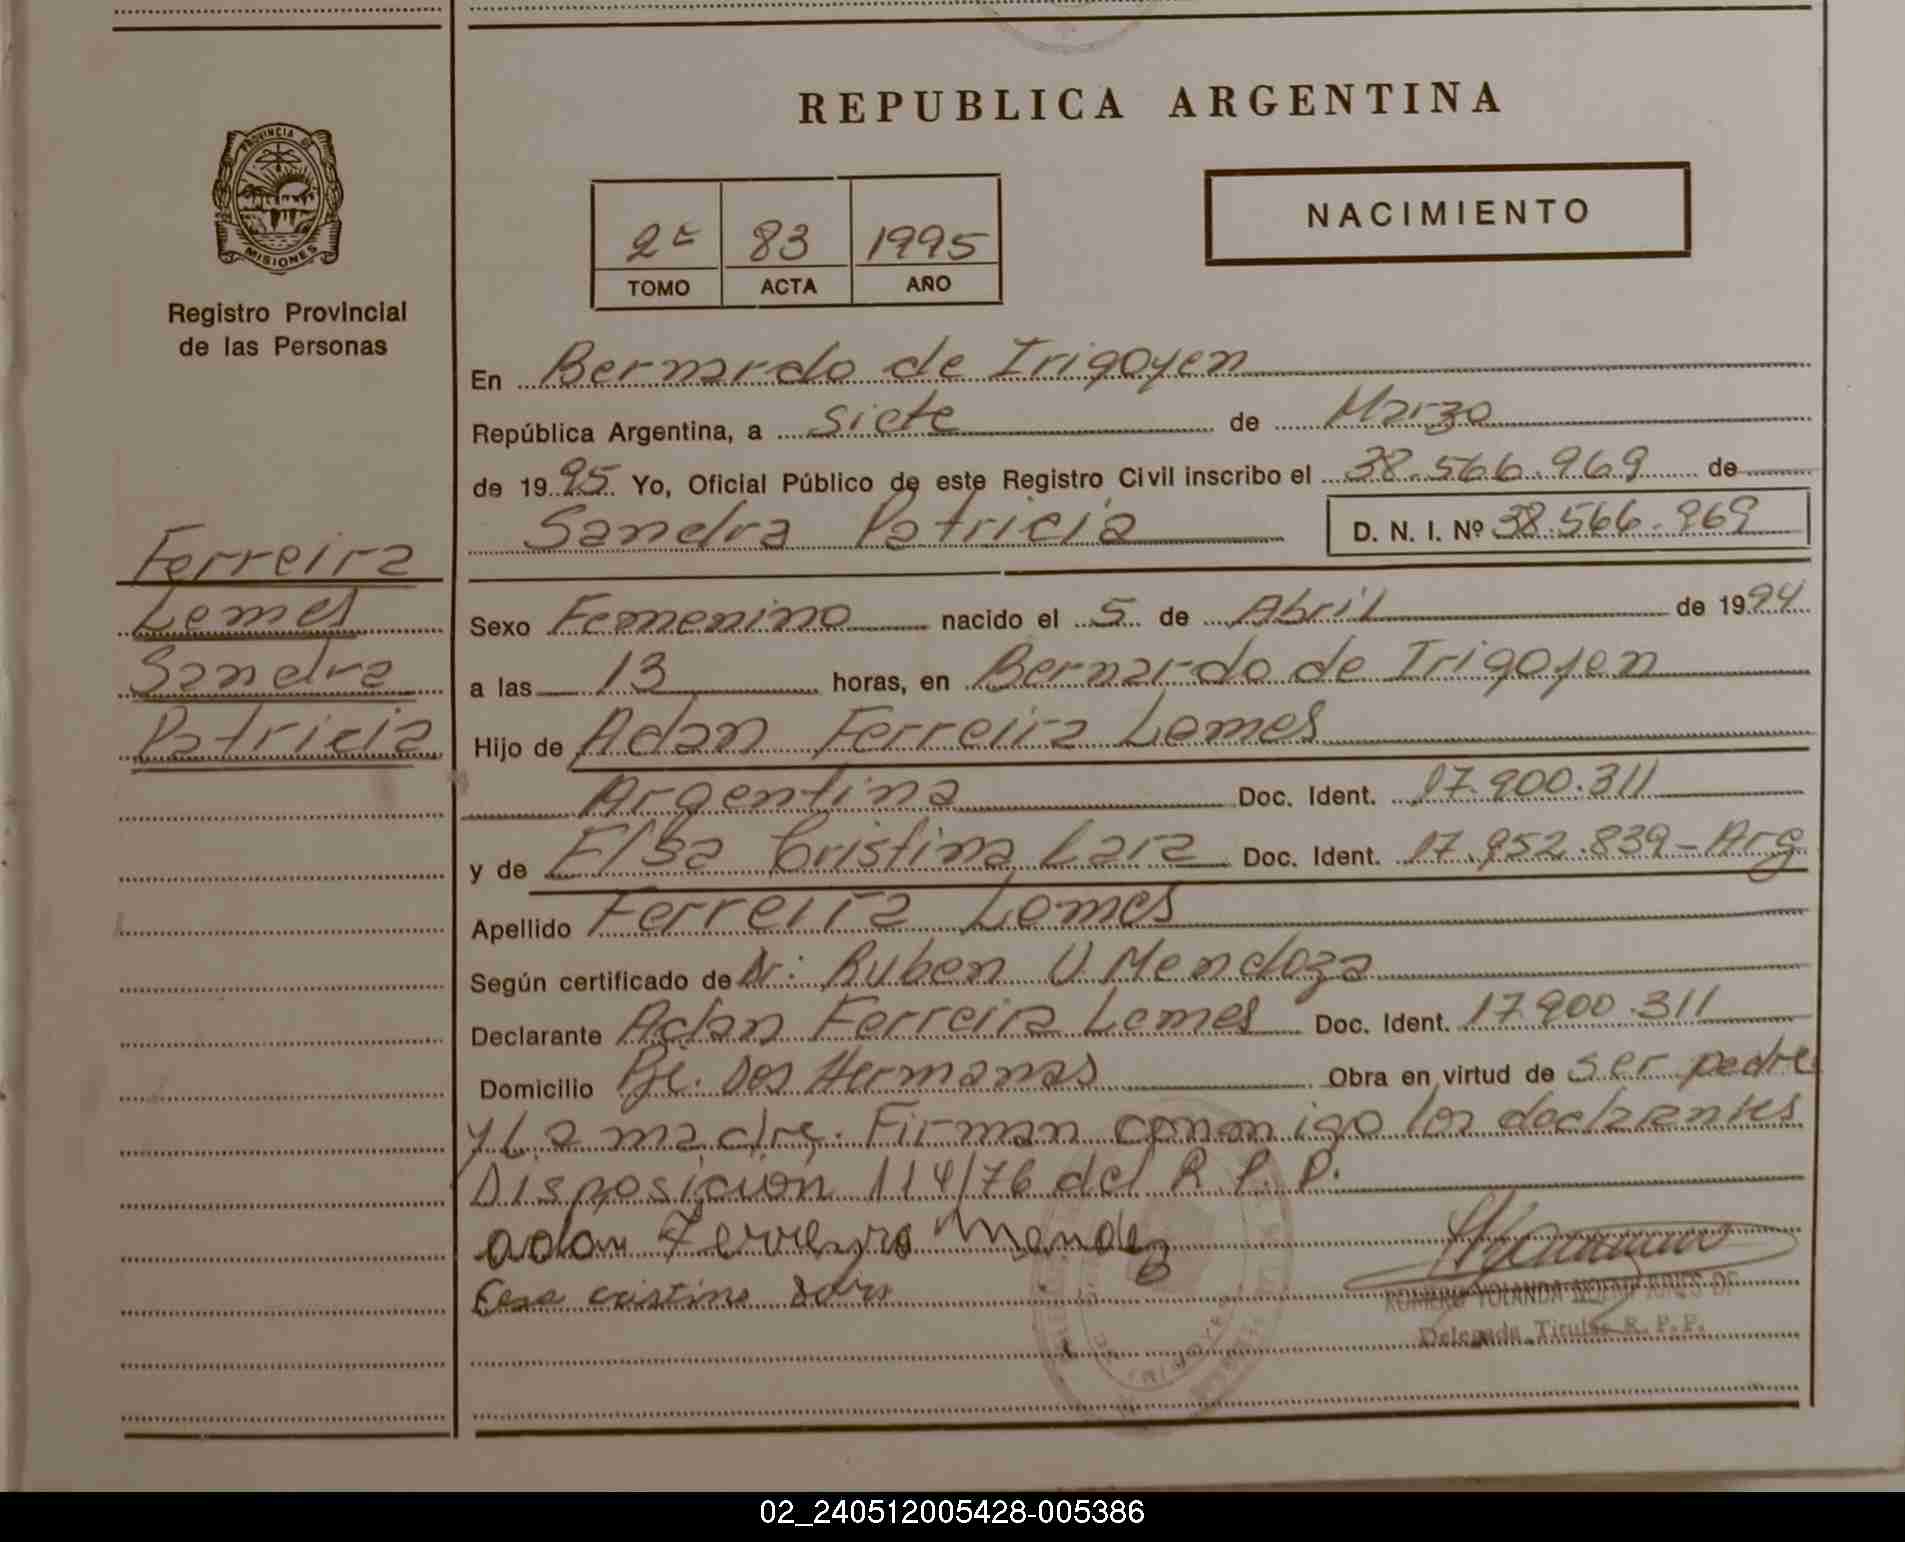 REPUBLICA ARGENTINA
PROVINCIA DE
MISIONES
Registro Provincial
de las Personas
NACIMIENTO
2º 83 1995
TOMO ACTA AÑO
Ferreira
Lemes
Sandra
Patricia
En Bernardo de Irigoyen
República Argentina, a siete de Marzo
de 1995 Yo, Oficial Público de este Registro Civil inscribo el 38.566.969 de
Sandra Patricia D. N. I. Nº 38.566.969
Sexo Femenino nacido el 5 de Abril de 1994
a las 13 horas, en Bernardo de Irigoyen
Hijo de Adan Ferreira Lemes
Argentina Doc. Ident. 17.900.311
y de Elsa Cristina Lara Doc. Ident. 17.952.839 - Arg
Apellido Ferreira Lemes
Según certificado de Dr: Ruben V Mendoza
Declarante Adan Ferreira Lemes Doc. Ident. 17.900.311
Domicilio Pje. Dos Hermanas Obra en virtud de ser padre
y La madre. Firman conmigo los declarantes
Disposición 114/76 del R. P. P.
adan Ferreyra Mendez
cristina
YOLANDA
Delegada Titular R. P. P.
02_240512005428-005386